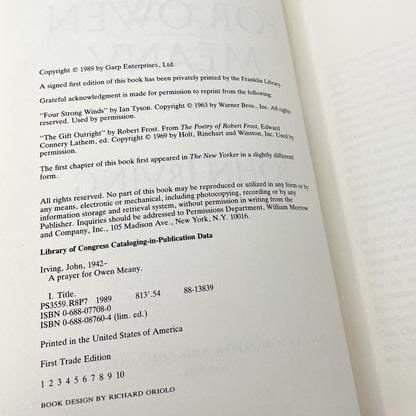 Copyright © 1989 by Garp Enterprises, Ltd.
A signed first edition of this book has been privately printed by the Franklin Library.
Grateful acknowledgment is made for permission to reprint from the following:
"Four Strong Winds" by Ian Tyson. Copyright © 1963 by Warner Bros., Inc. All rights
reserved. Used by permission.
"The Gift Outright" by Robert Frost. From The Poetry of Robert Frost, Edward
Connery Lathem, ed. Copyright © 1969 by Holt, Rinehart and Winston, Inc. Used by
permission.
The first chapter of this book first appeared in The New Yorker in a slightly different
form.
All rights reserved. No part of this book may be reproduced or utilized in any form or by
any means, electronic or mechanical, including photocopying, recording or by any
information storage and retrieval system, without permission in writing from the
Publisher. Inquiries should be addressed to Permissions Department, William Morrow
and Company, Inc., 105 Madison Ave., New York, N.Y. 10016.
Library of Congress Cataloging-in-Publication Data
Irving, John, 1942–
A prayer for Owen Meany.
I. Title.
PS3559.R8P7 1989 813'.54 88-13839
ISBN 0-688-07708-0
ISBN 0-688-08760-4 (lim. ed.)
Printed in the United States of America
First Trade Edition
1 2 3 4 5 6 7 8 9 10
BOOK DESIGN BY RICHARD ORIOLO